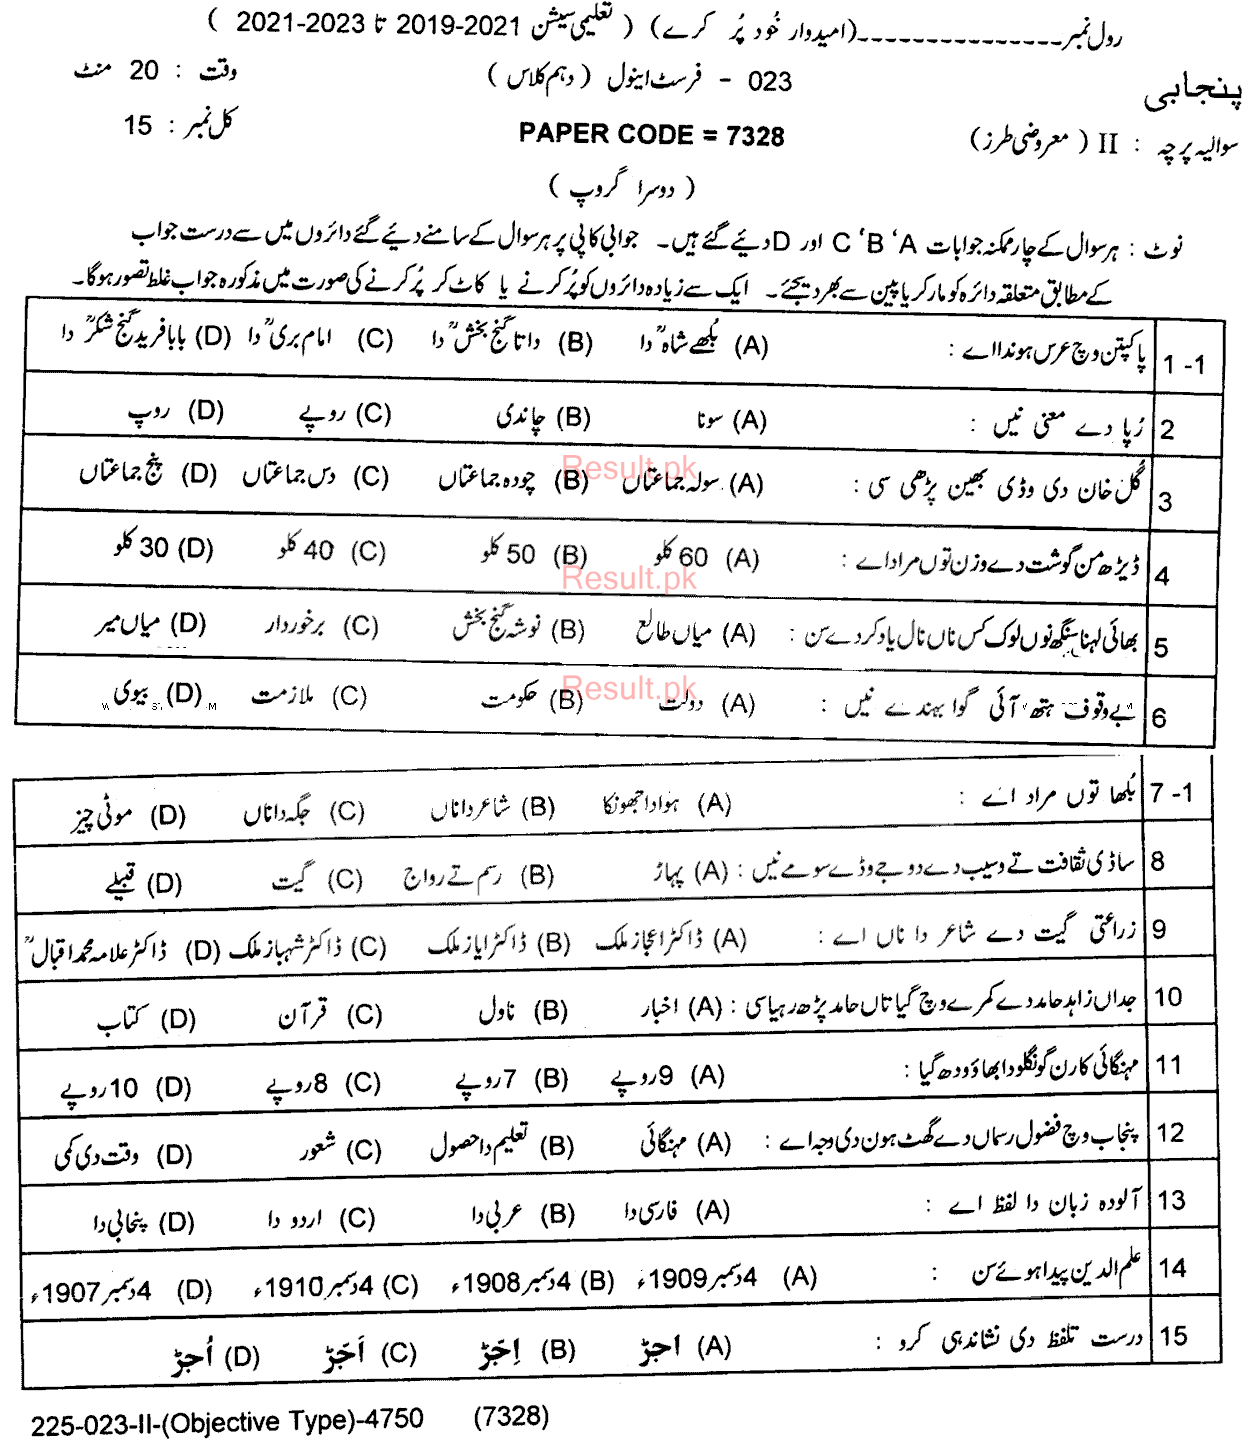 رول نمبر_______________(امیدوار خُود پُر کرے) ( تعلیمی سیشن 2021-2019 تا 2023-2021 )
پنجابی 023 - فرسٹ اینول ( دہم کلاس ) وقت : 20 منٹ
سوالیہ پرچہ : II ( معروضی طرز) PAPER CODE = 7328 کل نمبر : 15
( دوسرا گروپ )
نوٹ : ہر سوال کے چار ممکنہ جوابات A ' B ' C اور D دئیے گئے ہیں۔ جوابی کاپی پر ہر سوال کے سامنے دئیے گئے دائروں میں سے درست جواب
کے مطابق متعلقہ دائرہ کو مارکر یا پین سے بھر دیجئے۔ ایک سے زیادہ دائروں کو پُر کرنے یا کاٹ کر پُر کرنے کی صورت میں مذکورہ جواب غلط تصور ہوگا۔
1-1 پاکپتن وچ عرس ہوندا اے : (A) بُلھے شاہؒ دا (B) داتا گنج بخشؒ دا (C) امام بریؒ دا (D) بابا فرید گنج شکرؒ دا
2 رُپا دے معنی نیں : (A) سونا (B) چاندی (C) روپے (D) روپ
3 گُل خان دی وڈی بھین پڑھی سی : (A) سولہ جماعتاں (B) چودہ جماعتاں (C) دس جماعتاں (D) پنج جماعتاں
Result.pk
4 ڈیڑھ من گوشت دے وزن توں مراد اے : (A) 60 کلو (B) 50 کلو (C) 40 کلو (D) 30 کلو
Result.pk
5 بھائی لہنا سنگھ نوں لوک کس ناں نال یاد کردے سن : (A) میاں طالع (B) نوشہ گنج بخش (C) برخوردار (D) میاں میر
6 بے وقوف ہتھ آئی گوا بہندے نیں : (A) دولت (B) حکومت (C) ملازمت (D) بیوی
Result.pk
7-1 بُلھا توں مراد اے : (A) ہوا دا جھونکا (B) شاعر دا ناں (C) جگہ دا ناں (D) موٹی چیز
8 ساڈی ثقافت تے وسیب دے دوجے وڈے سومے نیں : (A) پہاڑ (B) رسم تے رواج (C) گیت (D) قبیلے
9 زراعتی گیت دے شاعر دا ناں اے : (A) ڈاکٹر اعجاز ملک (B) ڈاکٹر ایاز ملک (C) ڈاکٹر شہباز ملک (D) ڈاکٹر علامہ محمد اقبالؒ
10 جداں زاہد حامد دے کمرے وچ گیا تاں حامد پڑھ رہیا سی : (A) اخبار (B) ناول (C) قرآن (D) کتاب
11 مہنگائی کارن گونگلو دا بھاؤ ودھ گیا : (A) 9 روپے (B) 7 روپے (C) 8 روپے (D) 10 روپے
12 پنجاب وچ فضول رسماں دے گھٹ ہون دی وجہ اے : (A) مہنگائی (B) تعلیم دا حصول (C) شعور (D) وقت دی کمی
13 آلودہ زبان دا لفظ اے : (A) فارسی دا (B) عربی دا (C) اردو دا (D) پنجابی دا
14 علم الدین پیدا ہوئے سن : (A) 4 دسمبر 1909ء (B) 4 دسمبر 1908ء (C) 4 دسمبر 1910ء (D) 4 دسمبر 1907ء
15 درست تلفظ دی نشاندہی کرو : (A) اجڑ (B) اِجّڑ (C) اَجّڑ (D) اُجڑ
225-023-II-(Objective Type)-4750 (7328)